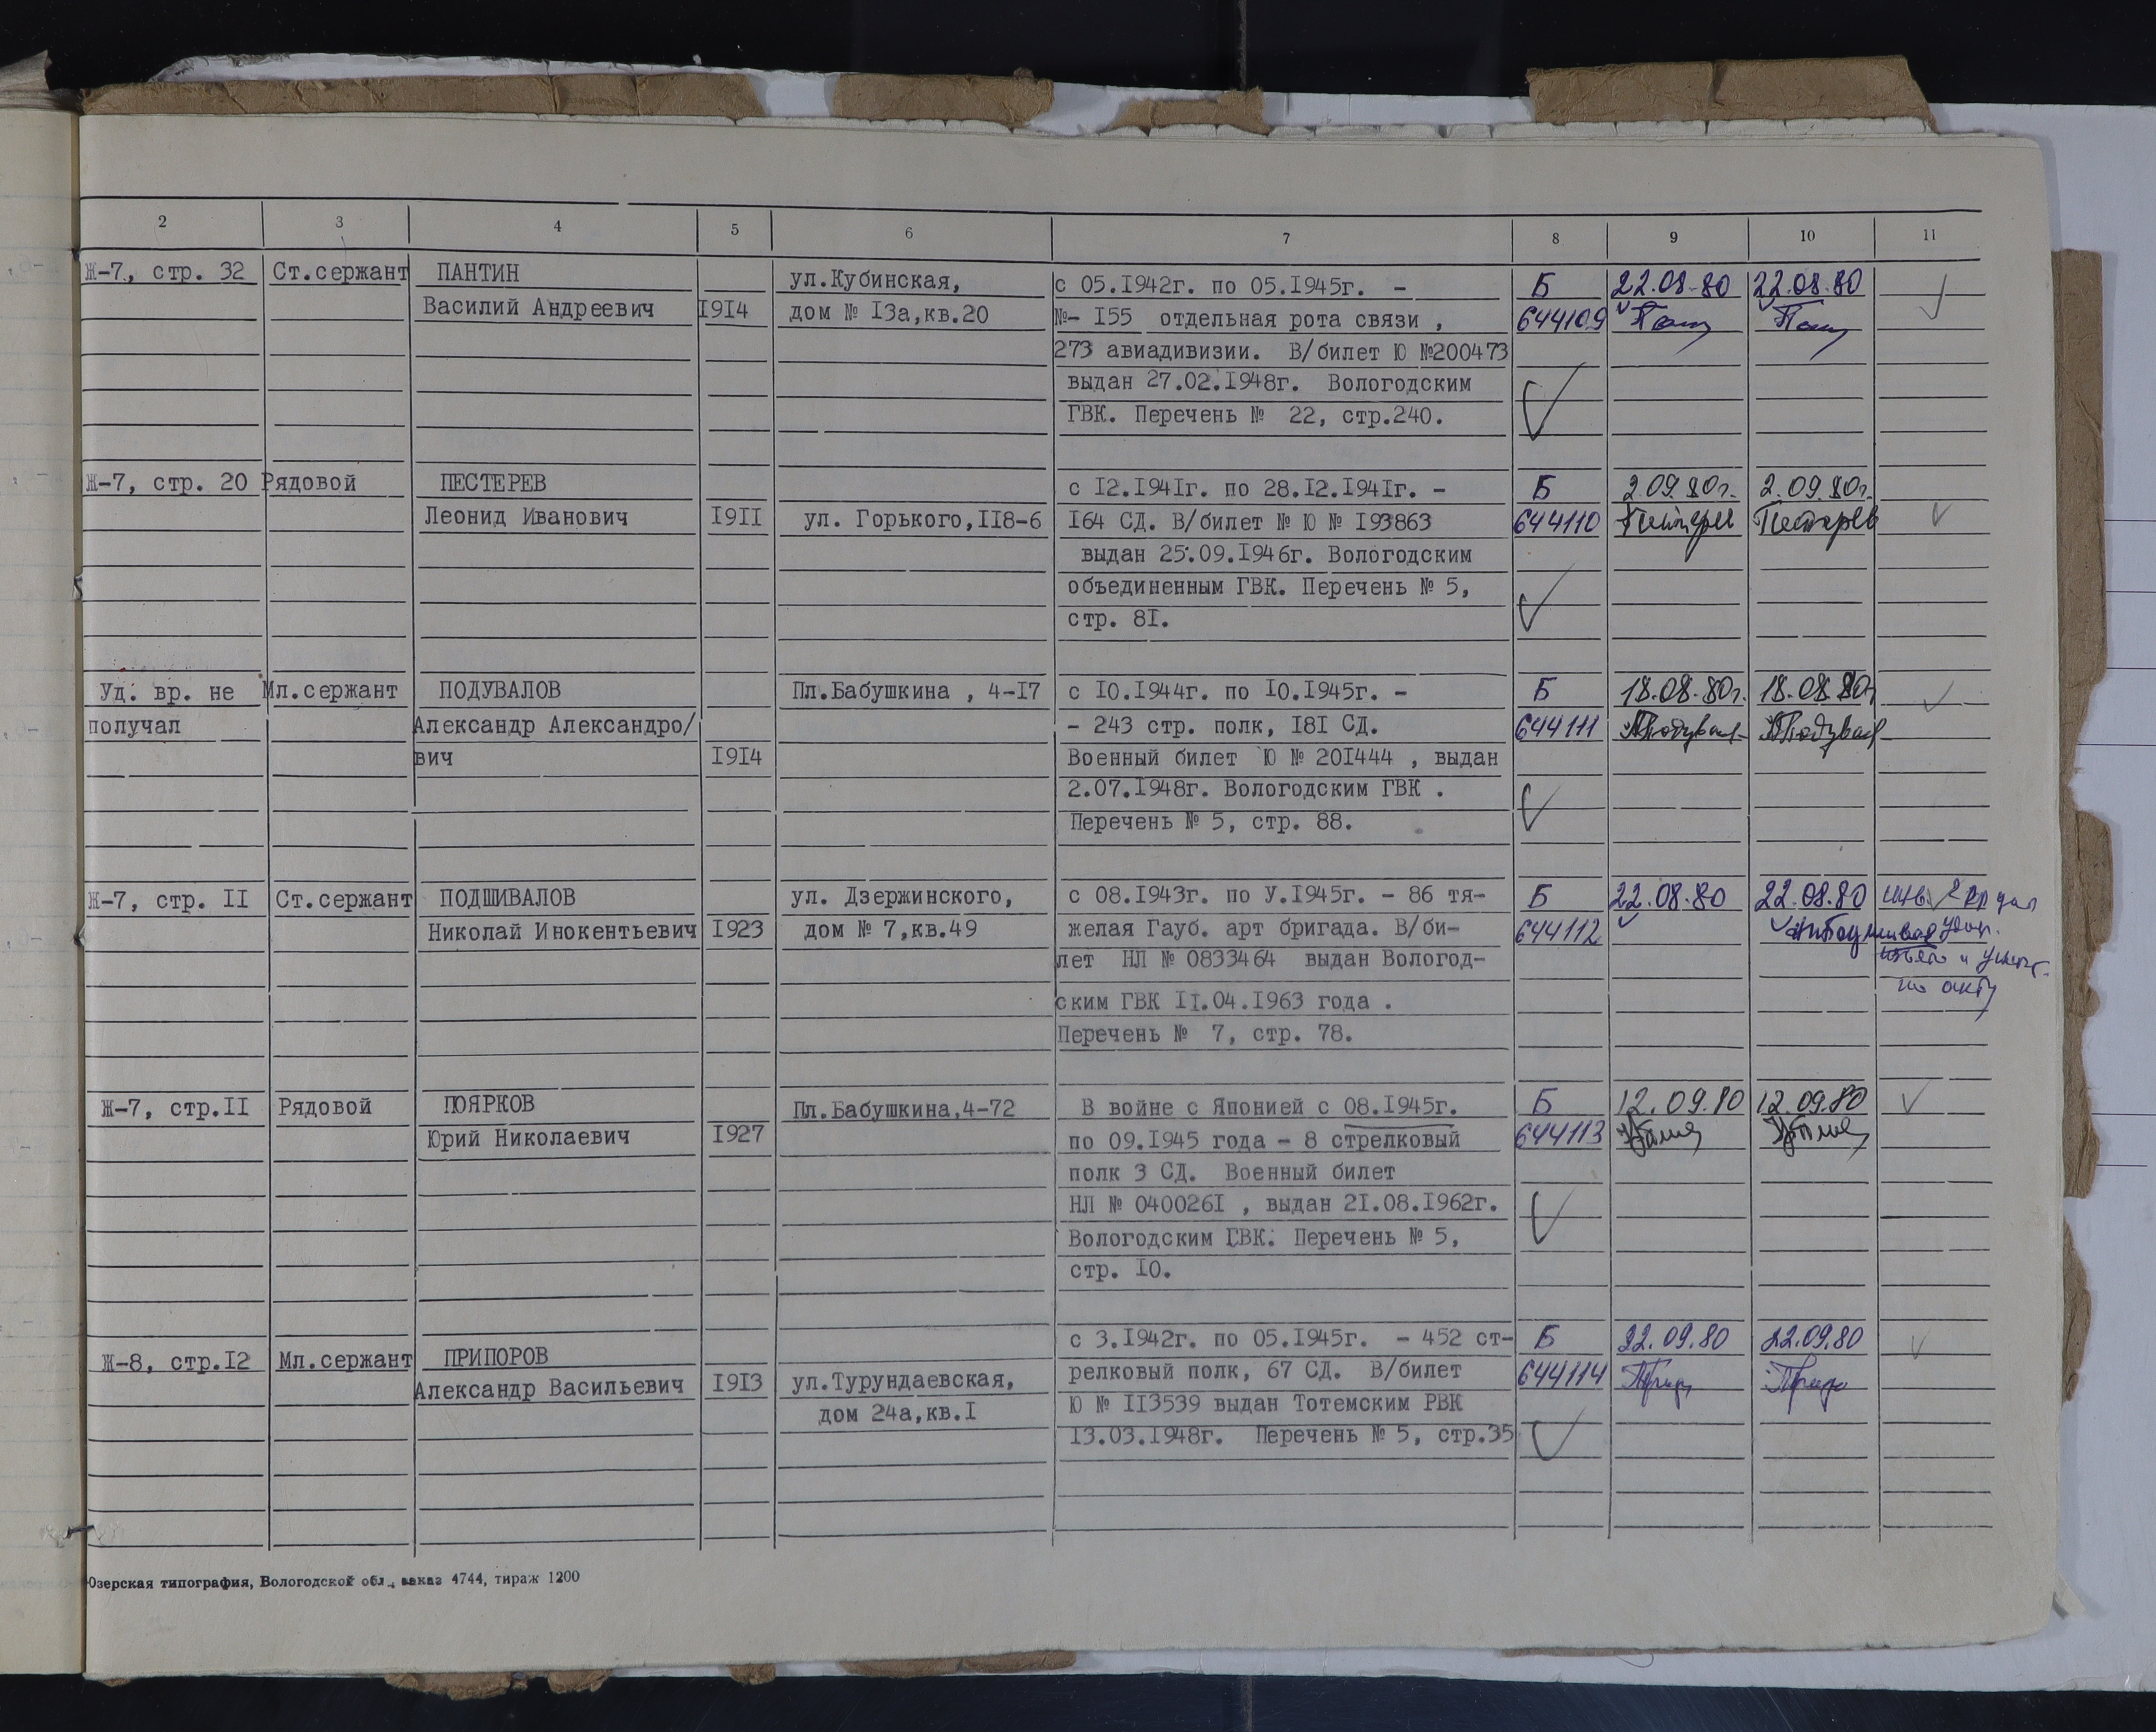 2 3 4 5 6 7 8 9 10 11
Ж-7, стр. 32 Ст.сержант ПАНТИН ул.Кубинская, с 05.I942г. по 05.I945г. - Б 22.08.80 22.08.80
Василий Андреевич I9I4 дом № I3а,кв.20 №- I55 отдельная рота связи , 644109
273 авиадивизии. В/билет Ю №200473
выдан 27.02.I948г. Вологодским
ГВК. Перечень № 22, стр.240.
Ж-7, стр. 20 Рядовой ПЕСТЕРЕВ с I2.I94Iг. по 28.I2.I94Iг. - Б 2.09.80г. 2.09.80г.
Леонид Иванович I9II ул. Горького,II8-6 I64 СД. В/билет № Ю № I93863 644110 Пестерев Пестерев
выдан 25.09.I946г. Вологодским
объединенным ГВК. Перечень № 5,
стр. 8I.
Уд. вр. не Мл.сержант ПОДУВАЛОВ Пл.Бабушкина , 4-I7 с I0.I944г. по I0.I945г. - Б 18.08.80г. 18.08.80г
получал Александр Александро/ - 243 стр. полк, I8I СД. 644111
вич I9I4 Военный билет Ю № 20I444 , выдан
2.07.I948г. Вологодским ГВК .
Перечень № 5, стр. 88.
Ж-7, стр. II Ст.сержант ПОДШИВАЛОВ ул. Дзержинского, с 08.I943г. по У.I945г. - 86 тя- Б 22.08.80 22.08.80
Николай Инокентьевич I923 дом № 7,кв.49 желая Гауб. арт бригада. В/би- 644112
лет НЛ № 0833464 выдан Вологод-
ским ГВК II.04.I963 года .
по акту
Перечень № 7, стр. 78.
Ж-7, стр.II Рядовой ПОЯРКОВ Пл.Бабушкина,4-72 В войне с Японией с 08.I945г. Б 12.09.80 12.09.80
Юрий Николаевич I927 по 09.I945 года - 8 стрелковый 644113
полк 3 СД. Военный билет
НЛ № 040026I , выдан 2I.08.I962г.
Вологодским ГВК. Перечень № 5,
стр. I0.
Ж-8, стр.I2 Мл.сержант ПРИПОРОВ с 3.I942г. по 05.I945г. - 452 ст- Б 22.09.80 22.09.80
Александр Васильевич I9I3 ул.Турундаевская, релковый полк, 67 СД. В/билет 644114
дом 24а,кв.I Ю № II3539 выдан Тотемским РВК
I3.03.I948г. Перечень № 5, стр.35
Юзерская типография, Вологодской обл., заказ 4744, тираж 1200